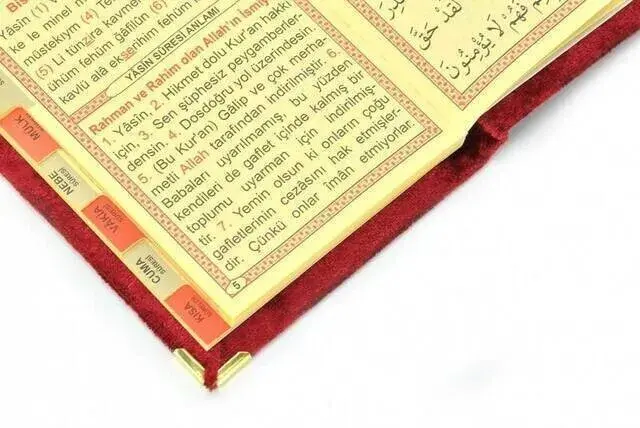 Yâsîn (1) V
ke le minel m
müstekıym (4) Te
(5) Li tünzira kavmen
ühüm fehüm ğâfilûn (6)
kavlü alâ ekserihim fehüm
YÂSİN SÛRESİ ANLAMI
Rahman ve Rahim olan Allah'ın İsmiy
1. Yâsîn, 2. Hikmet dolu Kur'an hakkı
için, 3. Sen şüphesiz peygamberler-
densin. 4. Dosdoğru yol üzerindesin.
5. (Bu Kur'an) Gâlip ve çok merha-
metli Allah tarafından indirilmiştir. 6.
Babaları uyarılmamış, bu yüzden
kendileri de gaflet içinde kalmış bir
toplumu uyarman için indirilmiş-
tir. 7. Yemin olsun ki onların çoğu
gafletlerinin cezâsını hak etmişler-
dir. Çünkü onlar îmân etmiyorlar.
5
لَقَدْ حَقَّ
فَهُمْ لَا يُؤْمِنُونَ
MÜLK
NEBE
SÛRESİ
VÂKIA
SÛRESİ
CUMA
SÛRESİ
KISA
SÛRELER